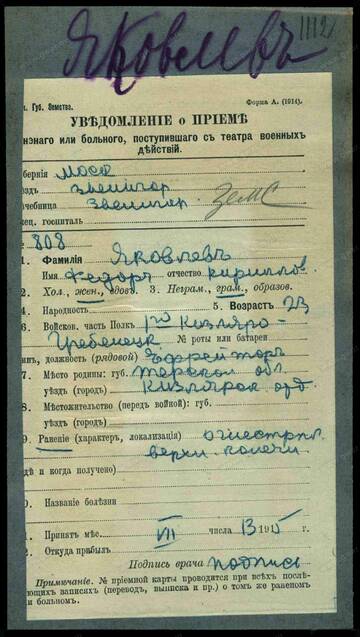 1112
Яковлевъ
. Губ. Земства.
Форма А. (1914).
УВѢДОМЛЕНІЕ о ПРІЕМѢ
нэнаго или больного, поступившаго съ театра военныхъ
дѣйствій.
бернія Моск
здъ Звенигор
чебница Звенигор ЗемС
ец. госпиталь
808
1. Фамилія Яковлевъ
Имя Федоръ отчество Кириллов.
2. Хол., жен., вдов. 3. Неграм., грам., образов.
4. Народность 5. Возрастъ 23
6. Войсков. часть Полк 1го Кизляро-
Гребенецк № роты или батареи
ин, должность (рядовой) Ефрейторъ
7. Мѣсто родины: губ. Терской об.
уѣздъ (город) Кизлярск отд
8. Мѣстожительство (передъ войной): губ.
уѣздъ (город)
9. Раненіе (характер, локализація) огнестрѣл.
верхн. конечн.
дѣ и когда получено)
0. Названіе болѣзни
1. Принятъ мѣс. VII числа 13 1915 г.
2. Откуда прибылъ
Подпись врача подпись
Примѣчаніе. № пріемной карты проводится при всѣхъ послѣ-
ующихъ записяхъ (переводъ, выписка и пр.) о томъ же раненомъ
и больномъ.